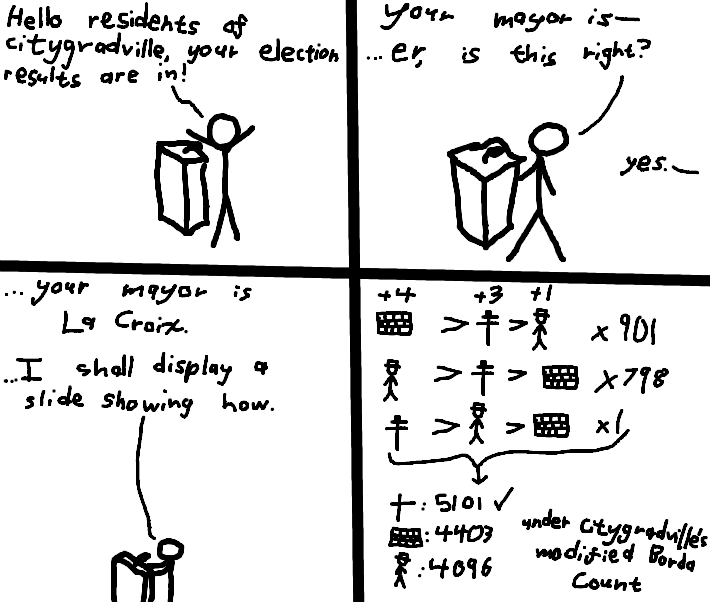 Hello residents of
citygradville, your election
results are in!
your mayor is—
...er, is this right?
yes.
...your mayor is
La Croix.
...I shall display a
slide showing how.
+4 +3 +1
> > x 901
> > x798
> > x1
: 5101 ✓
: 4403
: 4096
under Citygradville's
modified Borda
Count